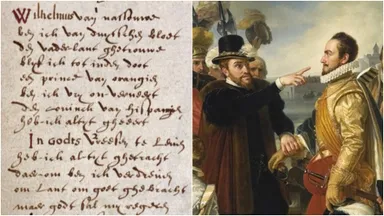 Wilhelmus van nassouwe
ben ick van duytschen bloet
den vaderlant ghetrouwe
blyf ick tot inden doot
een prince van orangien
ben ick vry onverveert
den coninck van hispangien
heb ick altyt gheeert
In Godts vreesen te Leuen
heb ick altyt ghetracht
daerom ben ick verdreuen
om Lant om goet ghebracht
maer godt sal my regeren